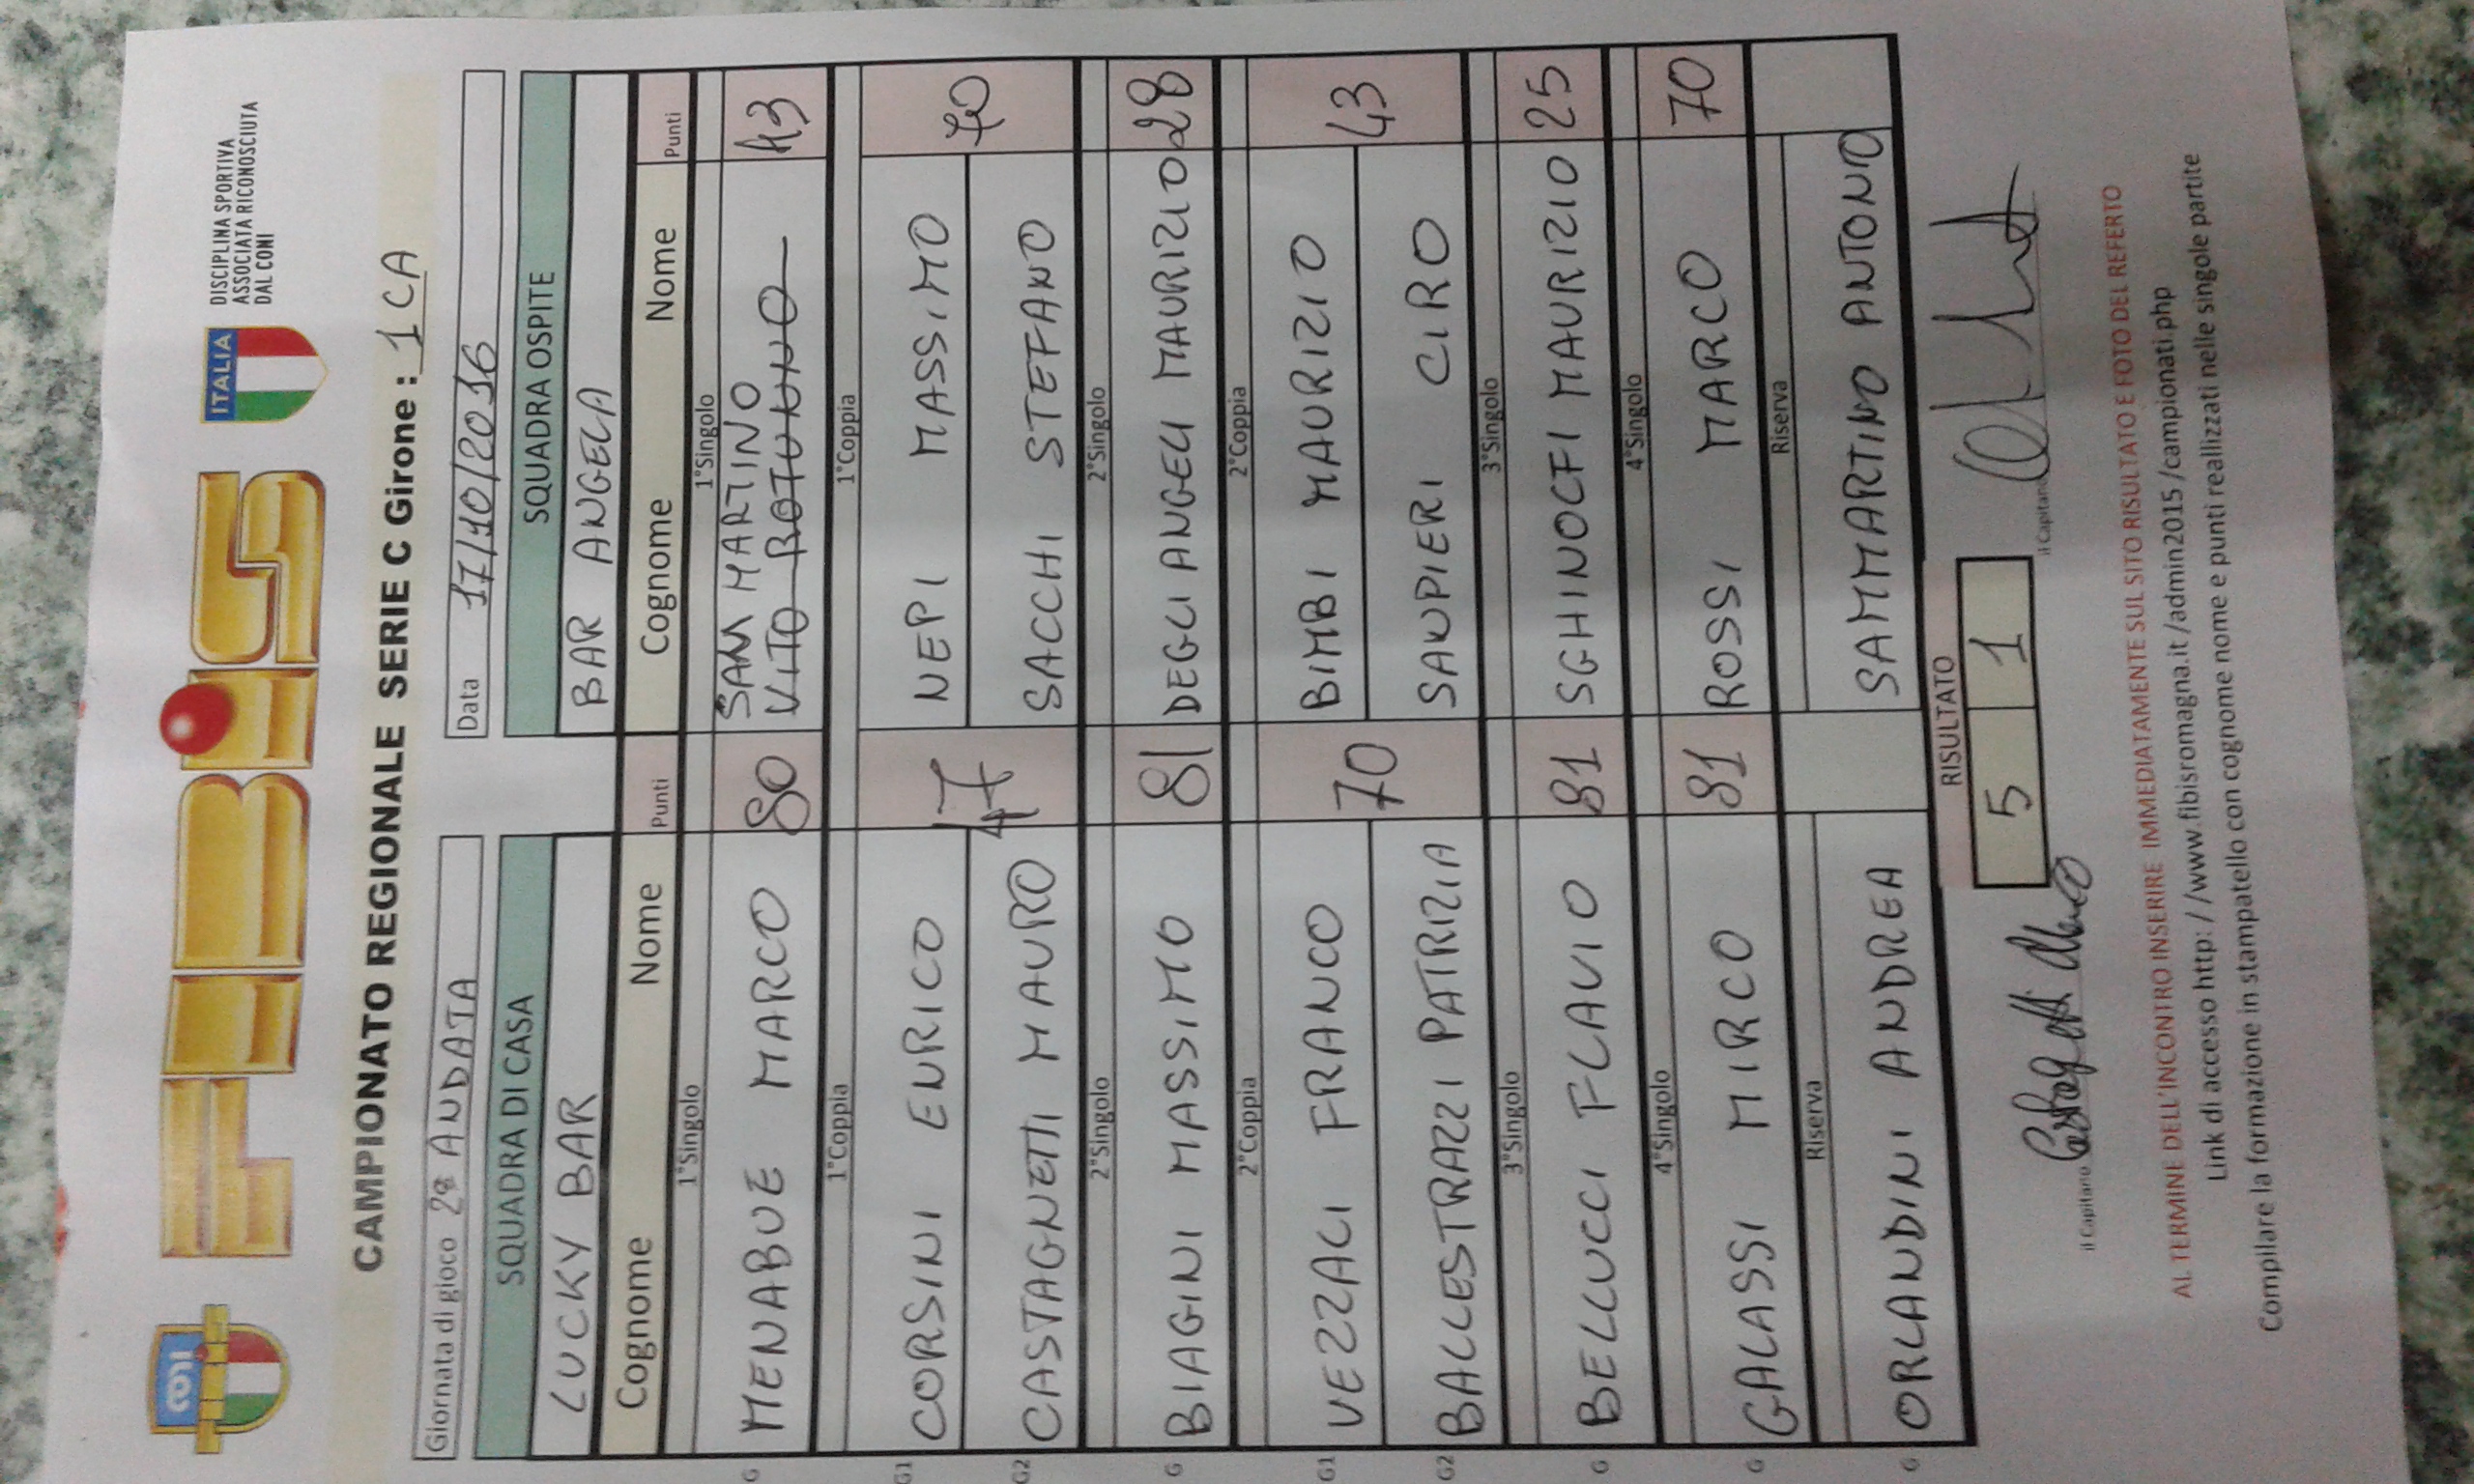 CONI
FIBiS
ITALIA
DISCIPLINA SPORTIVA
ASSOCIATA RICONOSCIUTA
DAL CONI
CAMPIONATO REGIONALE SERIE C Girone : 1 CA
Giornata di gioco 2ª ANDATA Data 17/10/2016
SQUADRA DI CASA SQUADRA OSPITE
LUCKY BAR BAR ANGELA
Cognome Nome Punti Cognome Nome Punti
1°Singolo 1°Singolo
SAM MARTINO
G MENABUE MARCO 80 VITO ROTUNNO 43
1°Coppia 1°Coppia
G1 CORSINI ENRICO 47 NEPI MASSIMO 70
G2 CASTAGNETTI MAURO SACCHI STEFANO
2°Singolo 2°Singolo
G BIAGINI MASSIMO 81 DEGLI ANGELI MAURIZIO 28
2°Coppia 2°Coppia
G1 VEZZALI FRANCO 70 BIMBI MAURIZIO 43
G2 BALLESTRAZZI PATRIZIA SANPIERI CIRO
3°Singolo 3°Singolo
G BELLUCCI FLAVIO 81 SGHINOLFI MAURIZIO 25
4°Singolo 4°Singolo
G GALASSI MIRCO 81 ROSSI MARCO 70
Riserva Riserva
G ORLANDINI ANDREA SAMMARTINO ANTONIO
RISULTATO
5 1
il Capitano il Capitano
AL TERMINE DELL'INCONTRO INSERIRE IMMEDIATAMENTE SUL SITO RISULTATO E FOTO DEL REFERTO
Link di accesso http: / /www.fibisromagna.it /admin2015 /campionati.php
Compilare la formazione in stampatello con cognome nome e punti reallizzati nelle singole partite